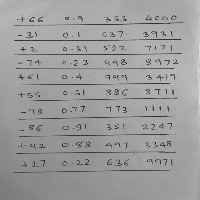 +66 0.9 333 4000
-31 0.1 637 3931
+2 0.31 522 7171
-74 0.23 448 8972
+61 0.4 999 3417
+55 0.51 886 8711
-98 0.77 773 1111
-86 0.91 351 2247
+92 0.88 497 3348
+27 0.22 636 9971